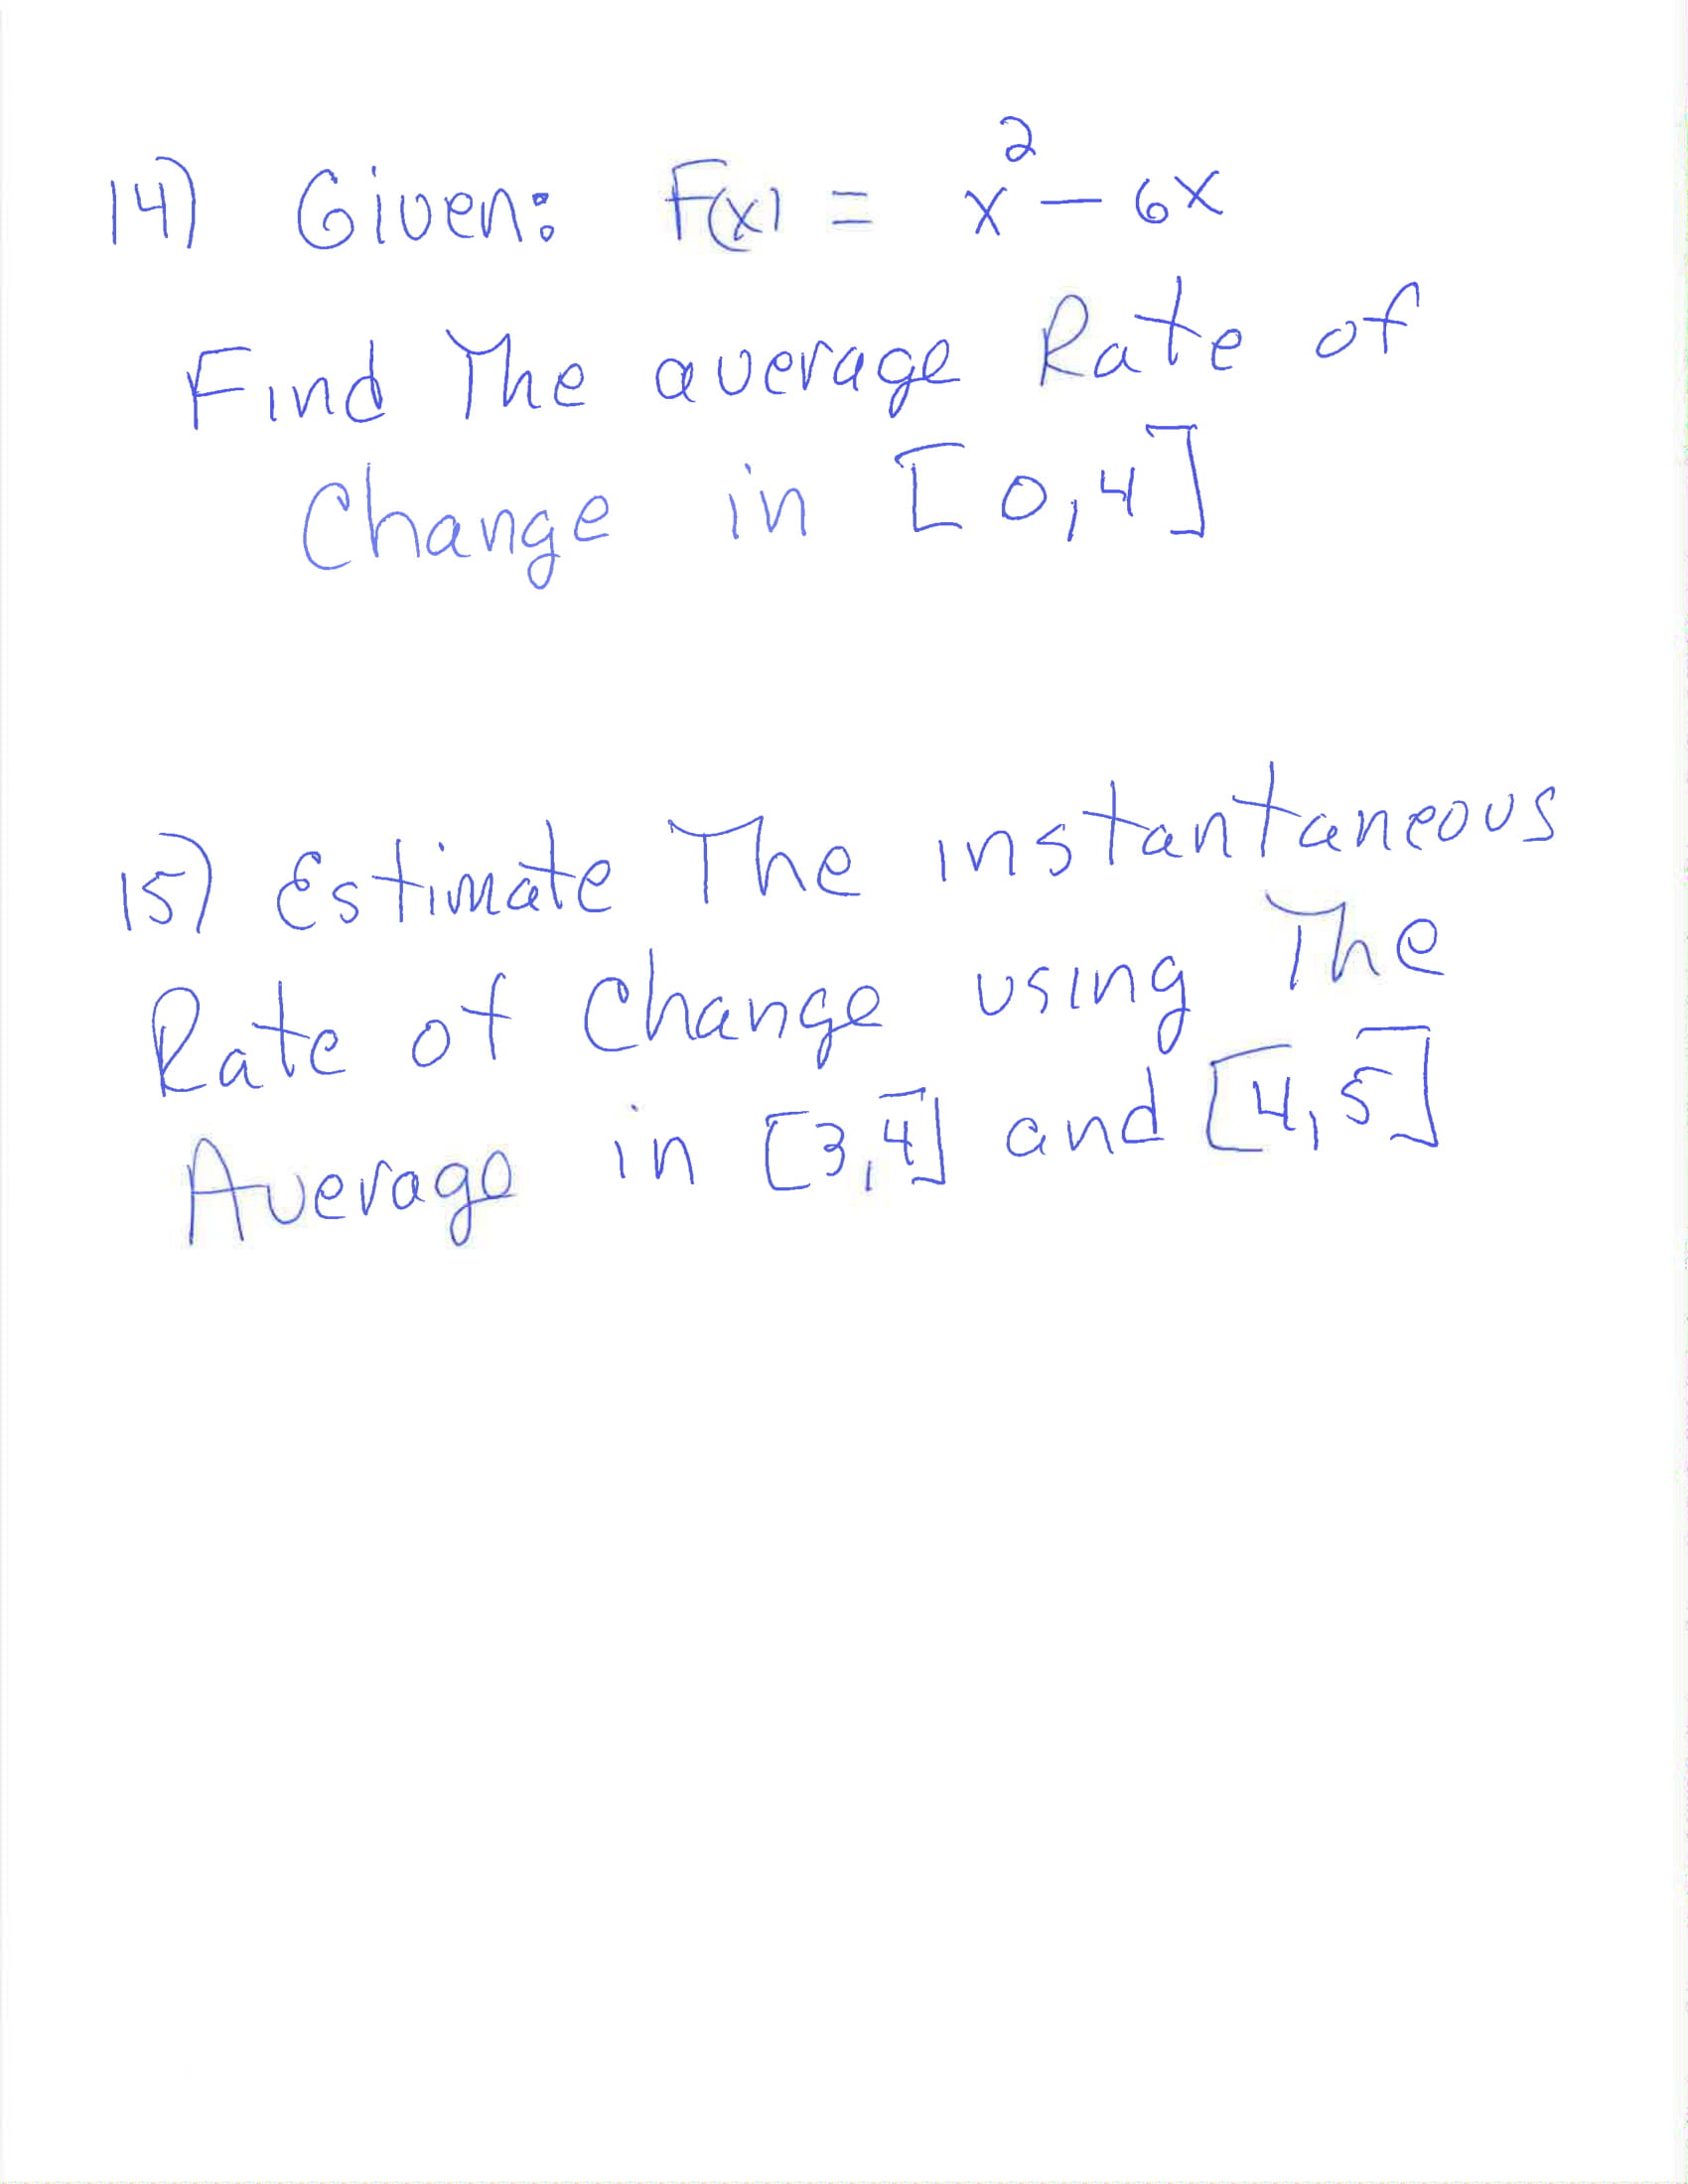 14) Given: F(x) = x² - 6x
Find The average Rate of
Change in [0,4]
15) Estimate The instantaneous
Rate of Change using The
Average in [3,4] and [4,5]